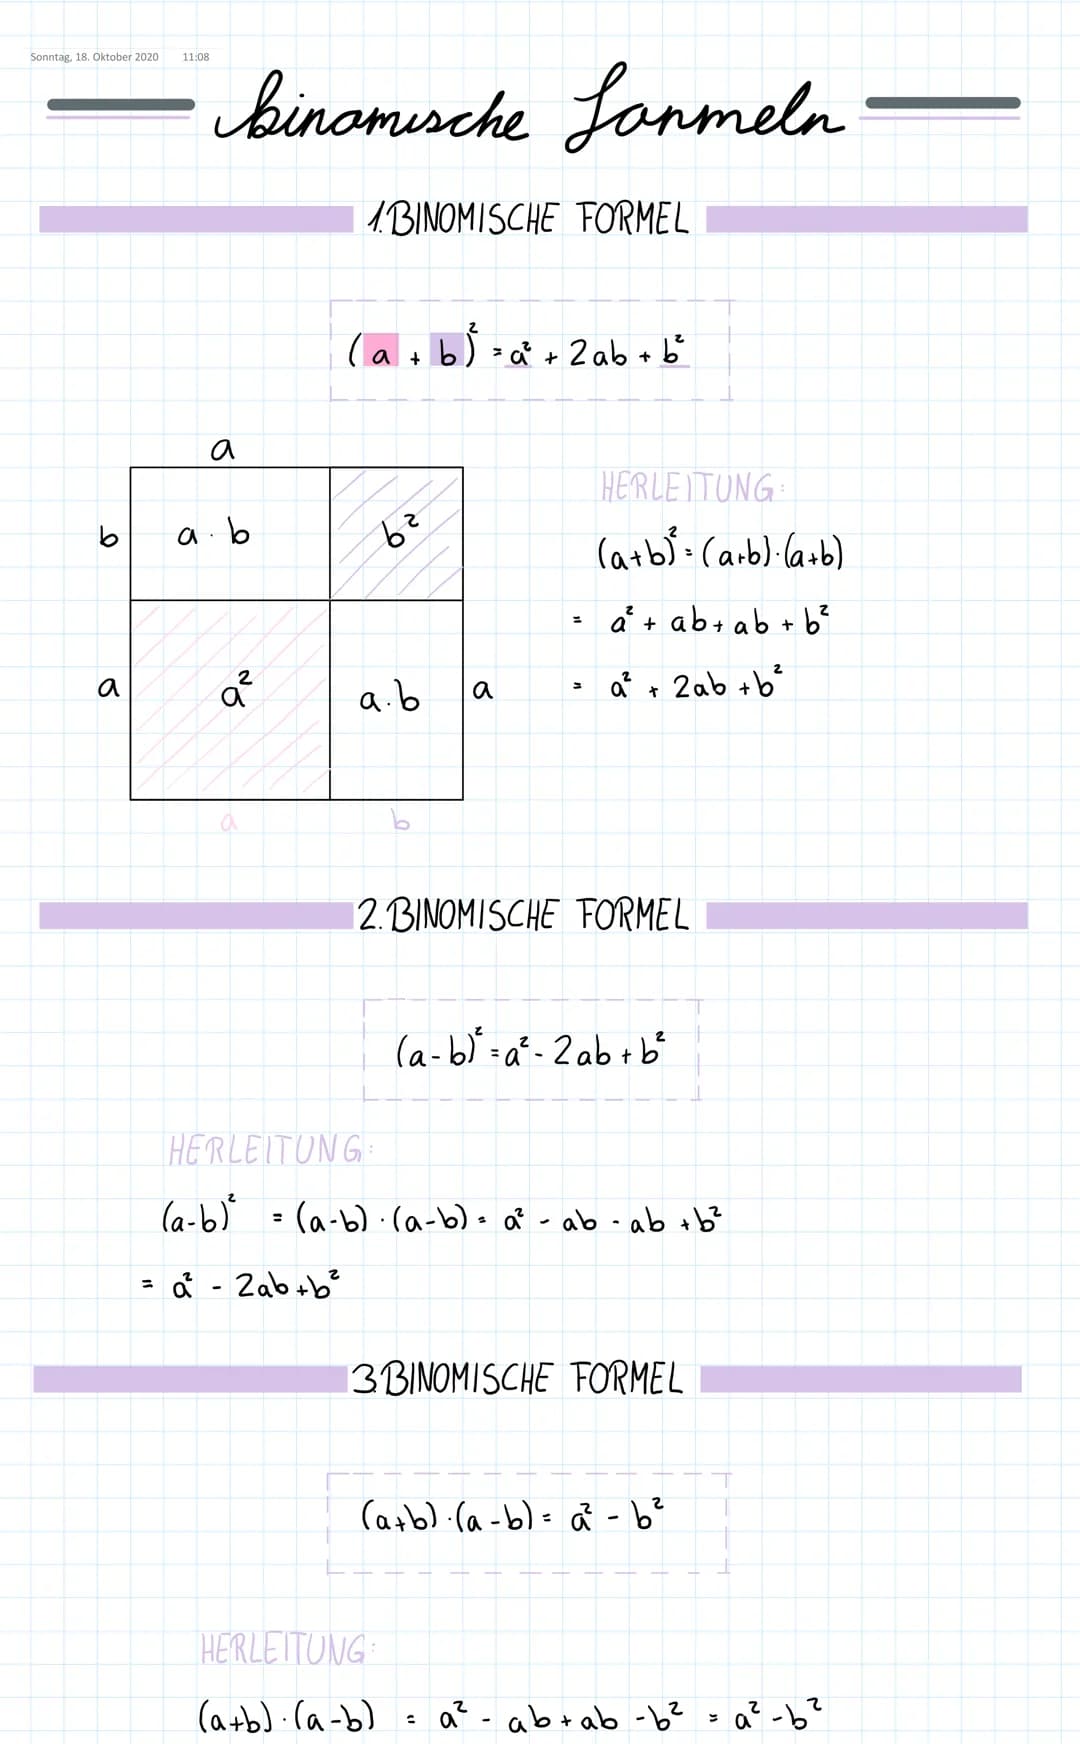 Sonntag, 18. Oktober 2020 11:08
binomische Formeln
1. BINOMISCHE FORMEL
(a + b)² = a² + 2ab + b²
a
b a · b b²
a a² a·b a
a b
HERLEITUNG:
(a+b)² = (a+b)·(a+b)
= a² + ab + ab + b²
= a² + 2ab + b²
2. BINOMISCHE FORMEL
(a-b)² = a² - 2ab + b²
HERLEITUNG:
(a-b)² = (a-b)·(a-b) = a² - ab - ab + b²
= a² - 2ab + b²
3 BINOMISCHE FORMEL
(a+b)·(a-b) = a² - b²
HERLEITUNG:
(a+b)·(a-b) = a² - ab + ab - b² = a² - b²